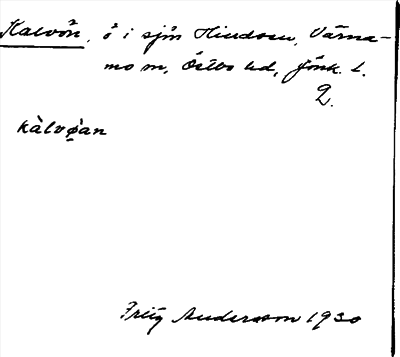 Kalvön, ö i sjön Hindsen, Värna-
mo m, Östbo hd, Jönk. l.
2.
kàlvø̀an
Fritz Andersson 1930